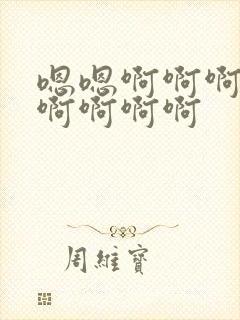 嗯嗯啊啊啊
啊啊啊啊
周維寶